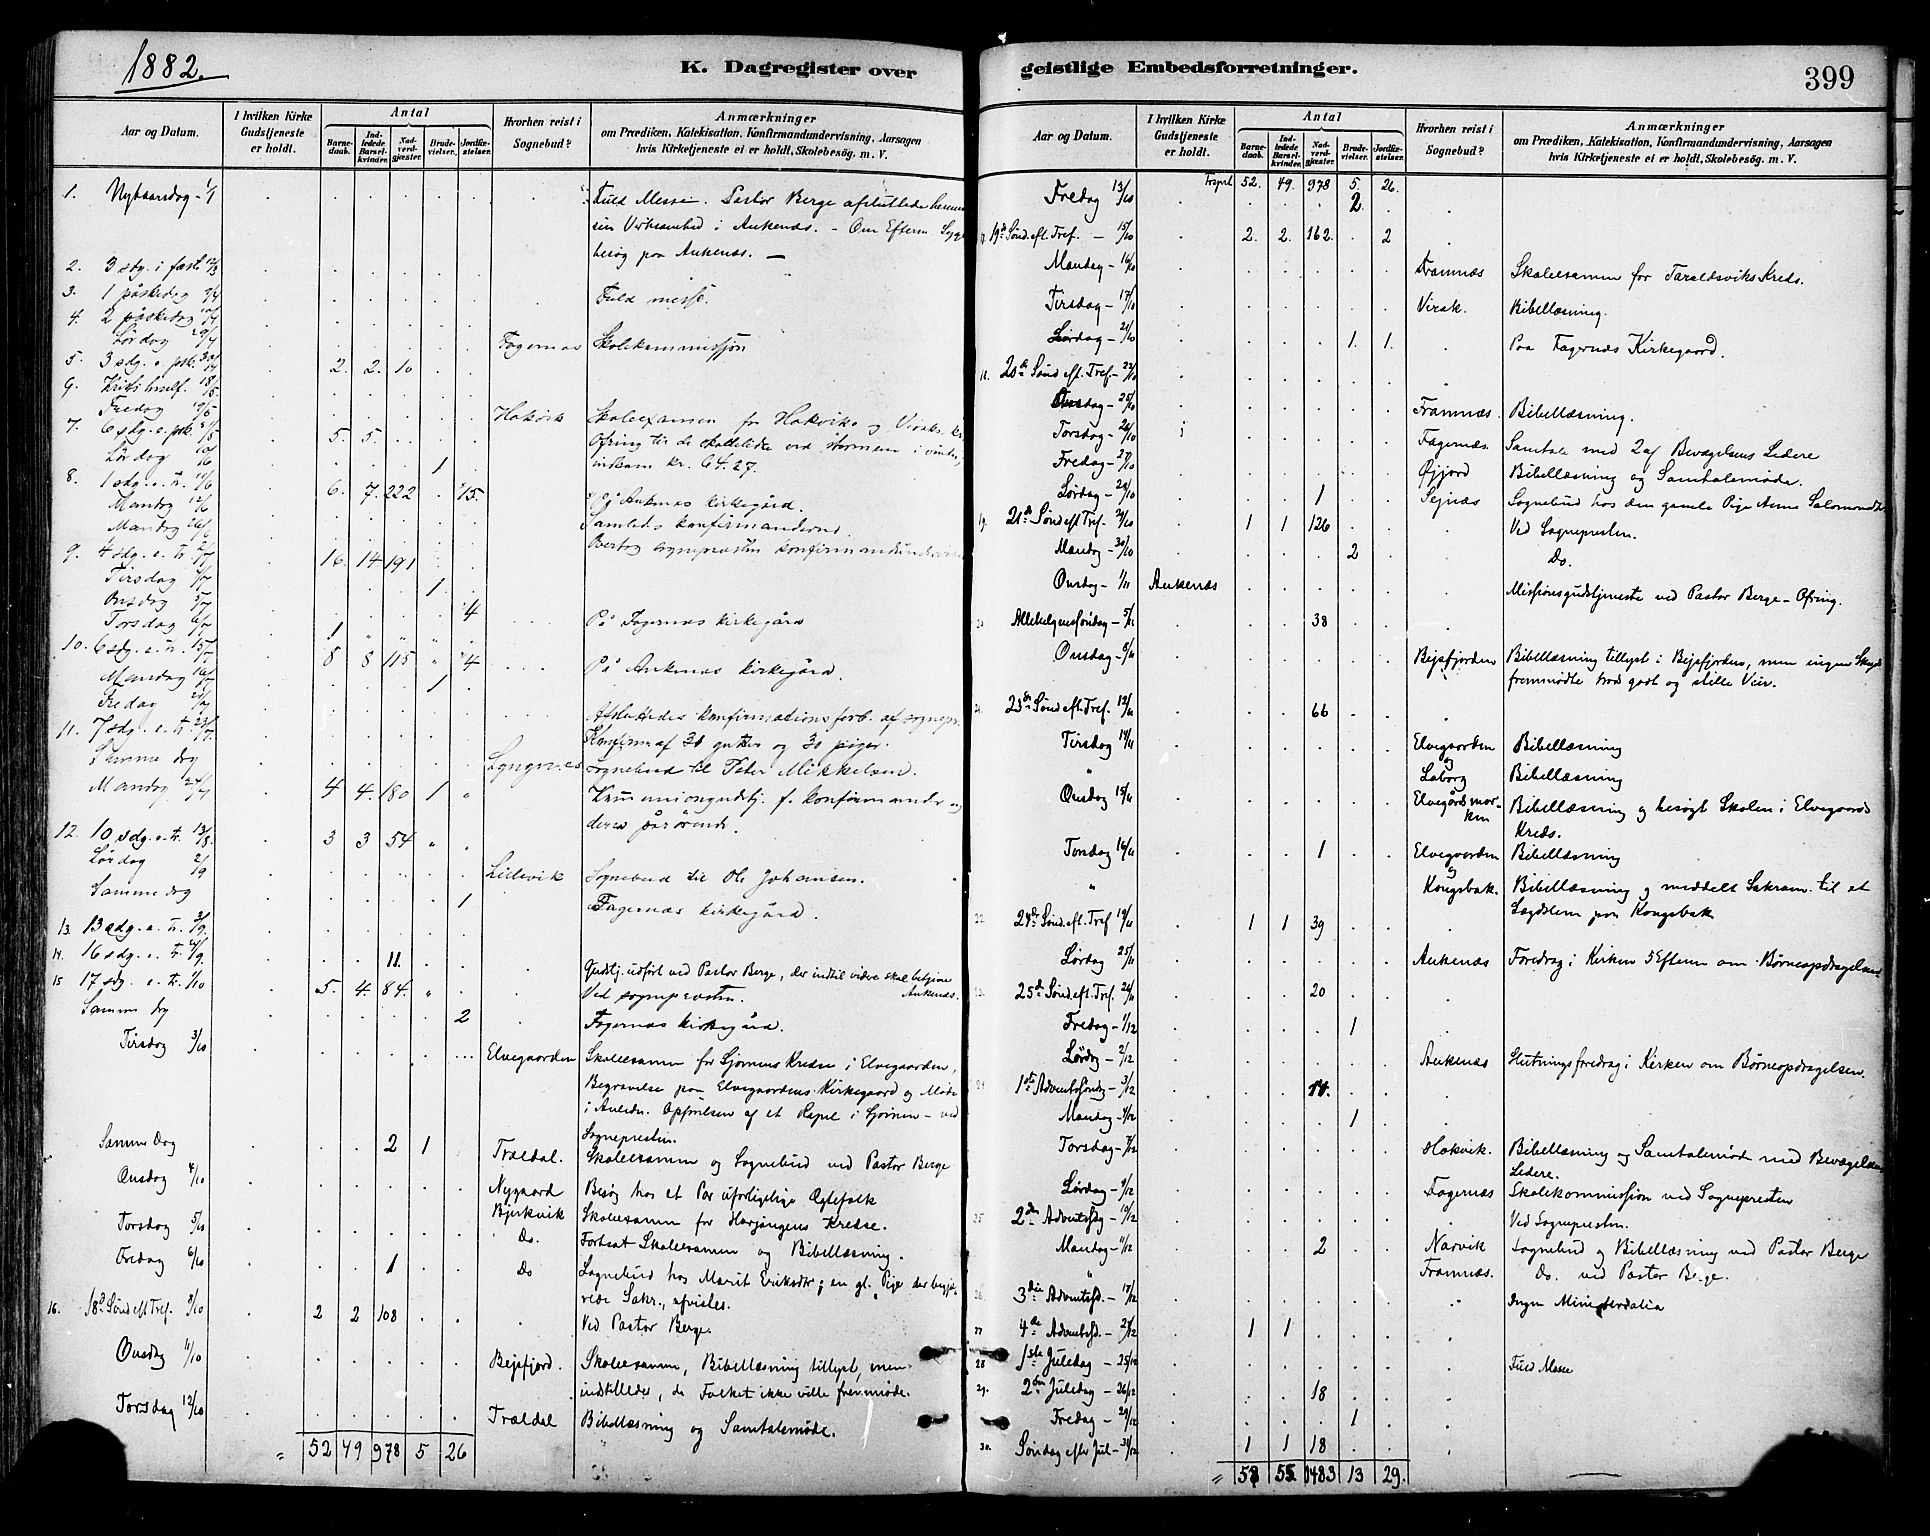 1882.
K. Dagregister over
Aar og Datum.
I hvilken Kirke Gudstjeneste er holdt.
Antal
Barnedaab.
Indledede Barselkvinder.
Nadverdgjæster.
Brudevielser.
Jordfæstelser.
Hvorhen reist i Sognebud?
Anmærkninger
om Prædiken, Katekisation, Konfirmandundervisning, Aarsagen
hvis Kirketjeneste ei er holdt, Skolebesög. m. V.
1. Nytaarsdag 1/1 Fuld Messe. Pastor Berge afsluttede herved
sin Virksomhed i Ankenæs. – Om Efterm Syge
besøg paa Ankenæs. —
2. 3 sdg. i fast. 12/3
3. 1 påskedag 9/4 Fuld messe.
4. 2 påskedag 10/4
Lördag 29/4 Fagernæs Skolekommissjon
5. 3 sdg. e. psk. 30/4 2. 2. 10
Krist himf. 18/5
Fredag 19/5 Hakvik Skoleexamen for Hakviks og Viraks kr.
7. 6 sdg. e. psk. 21/5 5. 5. Ofring til de skadelidte ved stormen i vinter,
Lördag 10/6 1 indkom kr. 64.27.
8. 1 sdg. e. tr. 11/6 6. 7. 222 15. På Ankenæs kirkegård.
Mandag 12/6 Samledes konfirmanderne
Mandag 26/6 Overtog sognepresten konfirmandunderv
9. 4 sdg. e. tr. 2/7 16. 14 191
Tirsdag 4/7 1
Onsdag 5/7 4 På Fagernæs kirkegård
Torsdag 6/7 1
10. 6 sdg. e. tr. 8 8 115 4 På Ankenæs kirkegård.
Mandag 1
Fredag 21/7 Afsluttedes konfirmationsforb. af sognepr.
11. 7 sdg. e. tr. 23/7 Konfirm af 30 gutter og 30 piger.
Samme dag Lyngnes Sognebud til Peter Mikkelsen.
Mandag 24/7 4 4. 180 1 Kommuniongudstj. f. konfirmander og
deres pårørende.
12. 10 sdg. e. tr. 13/8 3 3 54
Lördag 2/9 Lillevik Sognebud til Ole Johansen.
Samme dag 1 Fagernæs kirkegård.
13. 13 sdg. e. tr. 3/9
14. 16 sdg. e. tr. 11. Gudstj. udført ved Pastor Berge, der indtil videre skal betjene
Ankenæs.
15 17 sdg. e. tr. 1/10 5. 4. 84. Ved sognepresten.
Samme dag 2 Fagernæs kirkegård.
Tirsdag 3/10 Elvegaarden Skoleexamen for Gjornens Kredse i Elvegaarden,
Begravelse paa Elvegaardens Kirkegaard og Møde
i Anledn. Opførelsen af et Kapel i Gjornen – ved
Sognepresten.
Samme Dag 2 1 Trældal. Skoleexamen og Sognebud ved Pastor Berge
Onsdag 4/10 Nygaard Besøg hos et Par uforligelige Ægtefolk
Torsdag 5/10 Bjerkvik Skoleexamen for Harjangens Kredse.
Do. Fortsat Skoleexamen og Bibellæsning.
Fredag 6/10 1 Do Sognebud hos Marit Eriksdtr; en gl. Pige der begjæ-
rede Sakr., afvistes.
16. 18d Sønd eft Tref. 8/10 2 2 108 Ved Pastor Berge.
Onsdag 11/10 Bejsfjord. Skoleexamen, Bibellæsning tillyst, men
indstilledes, da Folket ikke ville fremmøde.
Torsdag 12/10 Trældal Bibellæsning og Samtalemøde.
52 49 978 5 26
geistlige Embedsforretninger.
399
Aar og Datum.
I hvilken Kirke Gudstjeneste er holdt.
Antal
Barnedaab.
Indledede Barselkvinder.
Nadverdgjæster.
Brudevielser.
Jordfæstelser.
Hvorhen reist i Sognebud?
Anmærkninger
om Prædiken, Katekisation, Konfirmandundervisning, Aarsagen
hvis Kirketjeneste ei er holdt, Skolebesög. m. V.
Trsprt 52. 49. 978 5. 26.
Fredag 13/10 2.
17. 19d Sønd. eft. Tref. – 15/10 2. 2. 162. 2
Mandag – 16/10 Framnæs Skoleexamen for Taraldsviks Kreds.
Tirsdag – 17/10 Virak. Bibellæsning.
Lørdag – 21/10 1. 1. Paa Fagernæs Kirkegaard.
18. 20de Sønd eft. Tref. – 22/10
Onsdag – 25/10 Framnæs. Bibellæsning.
Torsdag – 26/10 Fagernæs. Samtale med 2 af Bevægelsens Ledere
Fredag – 27/10 Øjjord Bibellæsning og Samtalemøde.
Lørdag – 28/10 1 Sejnæs Sognebud hos den gamle Pige Anne Salomonsdtr
19. 21de Sønd eft Tref. 29/10 1 1 126 Ved Sognepresten.
Mandag – 30/10 2 Do.
Onsdag – 1/11 Ankenæs Missionsgudstjeneste ved Pastor Berge – Ofring.
Allehelgenssøndag – 5/11 38
Onsdag – 8/11 Bejsfjorden Bibellæsning tillyst i Bejsfjorden, men ingen
fremmødte trods godt og stille Veir.
21. 23de Sønd eft. Tref. 12/11 66
Tirsdag 14/11 Elvegaarden Bibellæsning
" og Laberg Bibellæsning
Onsdag 15/11 Elvegårdsmarken Bibellæsning og besøgt Skolen i Elvegaards
Kreds.
Torsdag 16/11 1 Elvegaarden Bibellæsning
" og Kongsbak. Bibellæsning og meddelt Sakram. til et
Lægdslem paa Kongsbak
22. 24de Sønd. eft. Tref 19/11 1 1 39
Lørdag 25/11 Ankenæs Foredrag i Kirken 5 Efterm om Børneopdragelsen
23. 25de Sønd. eft. Tref. 26/11 20
Fredag – 1/12 1
Lørdag – 2/12 Ankenæs Slutningsforedrag i Kirken om Børneopdragelsen.
24 1ste Adventssøndag – 3/12 11.
Mandag – 4/12 1
Torsdag – 7/12 Hakvik. Bibellæsning og Samtalemøde med Bevægelsens
Ledere.
Lørdag – 9/12 Fagernæs Skolekommission ved Sognepresten
25 2den Adventssdg – 10/12 Ved Sognepresten.
Mandag – 11/12 2 Narvik Sognebud og Bibellæsning ved Pastor Berge
" Framnæs. Do. ved Pastor Berge.
26. 3die Adventss. – 17/12 Ingen Ministerialia
27 4de Adventss. – 24/12 1 1
28 1ste Juledag – 25/12 Fuld Messe
29. 2den Juledag – 26/12 18
Fredag – 29/12 1
30. Søndag efter Jul – 31/12 1 1 18
58 55 1483 13 29.